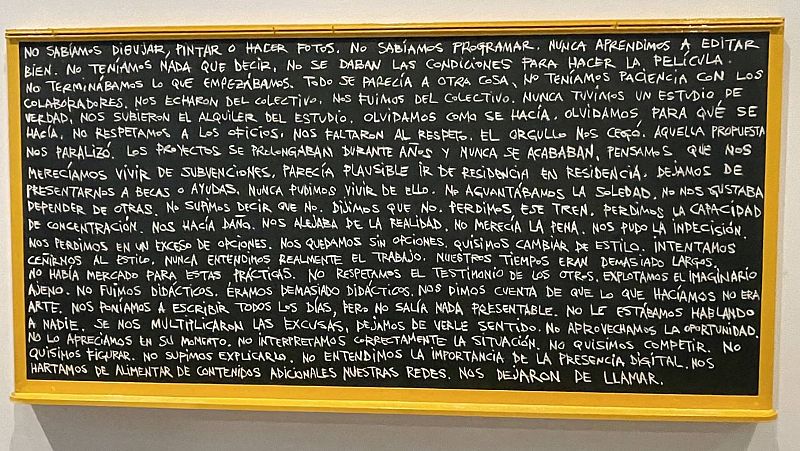 NO SABÍAMOS DIBUJAR, PINTAR O HACER FOTOS. NO SABÍAMOS PROGRAMAR. NUNCA APRENDIMOS A EDITAR
BIEN. NO TENÍAMOS NADA QUE DECIR. NO SE DABAN LAS CONDICIONES PARA HACER LA PELÍCULA.
NO TERMINÁBAMOS LO QUE EMPEZÁBAMOS. TODO SE PARECÍA A OTRA COSA. NO TENÍAMOS PACIENCIA CON LOS
COLABORADORES. NOS ECHARON DEL COLECTIVO. NOS FUIMOS DEL COLECTIVO. NUNCA TUVIMOS UN ESTUDIO DE
VERDAD. NOS SUBIERON EL ALQUILER DEL ESTUDIO. OLVIDAMOS COMO SE HACÍA. OLVIDAMOS PARA QUÉ SE
HACÍA. NO RESPETAMOS A LOS OFICIOS. NOS FALTARON AL RESPETO. EL ORGULLO NOS CEGÓ. AQUELLA PROPUESTA
NOS PARALIZÓ. LOS PROYECTOS SE PROLONGABAN DURANTE AÑOS Y NUNCA SE ACABABAN. PENSAMOS QUE NOS
MERECÍAMOS VIVIR DE SUBVENCIONES. PARECÍA PLAUSIBLE IR DE RESIDENCIA EN RESIDENCIA. DEJAMOS DE
PRESENTARNOS A BECAS O AYUDAS. NUNCA PUDIMOS VIVIR DE ELLO. NO AGUANTÁBAMOS LA SOLEDAD. NO NOS GUSTABA
DEPENDER DE OTRAS. NO SUPIMOS DECIR QUE NO. DIJIMOS QUE NO. PERDIMOS ESE TREN. PERDIMOS LA CAPACIDAD
DE CONCENTRACIÓN. NOS HACÍA DAÑO. NOS ALEJABA DE LA REALIDAD. NO MERECÍA LA PENA. NOS PUDO LA INDECISIÓN.
NOS PERDIMOS EN UN EXCESO DE OPCIONES. NOS QUEDAMOS SIN OPCIONES. QUISIMOS CAMBIAR DE ESTILO. INTENTAMOS
CEÑIRNOS AL ESTILO. NUNCA ENTENDIMOS REALMENTE EL TRABAJO. NUESTROS TIEMPOS ERAN DEMASIADO LARGOS.
NO HABÍA MERCADO PARA ESTAS PRÁCTICAS. NO RESPETAMOS EL TESTIMONIO DE LOS OTROS. EXPLOTAMOS EL IMAGINARIO
AJENO. NO FUIMOS DIDÁCTICOS. ÉRAMOS DEMASIADO DIDÁCTICOS. NOS DIMOS CUENTA DE QUE LO QUE HACÍAMOS NO ERA
ARTE. NOS PONÍAMOS A ESCRIBIR TODOS LOS DÍAS, PERO NO SALÍA NADA PRESENTABLE. NO LE ESTÁBAMOS HABLANDO
A NADIE. SE NOS MULTIPLICARON LAS EXCUSAS. DEJAMOS DE VERLE SENTIDO. NO APROVECHAMOS LA OPORTUNIDAD.
NO LO APRECIAMOS EN SU MOMENTO. NO INTERPRETAMOS CORRECTAMENTE LA SITUACIÓN. NO QUISIMOS COMPETIR. NO
QUISIMOS FIGURAR. NO SUPIMOS EXPLICARLO. NO ENTENDIMOS LA IMPORTANCIA DE LA PRESENCIA DIGITAL. NOS
HARTAMOS DE ALIMENTAR DE CONTENIDOS ADICIONALES NUESTRAS REDES. NOS DEJARON DE LLAMAR.